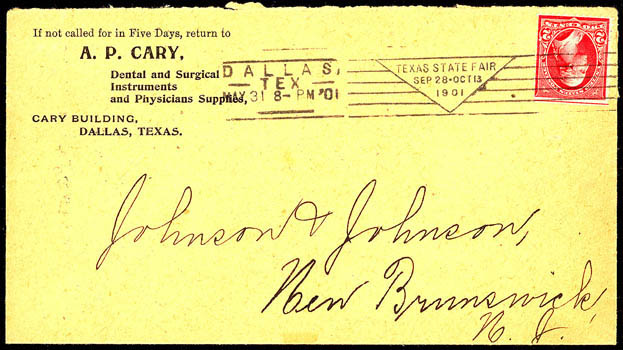 If not called for in Five Days, return to
A. P. CARY,
Dental and Surgical
Instruments
and Physicians Supplies,
CARY BUILDING,
DALLAS, TEXAS.
DALLAS,
TEX
MAY 31 8-PM '01
TEXAS STATE FAIR
SEP 28-OCT 13
1901
Johnson & Johnson,
New Brunswick,
N. J.